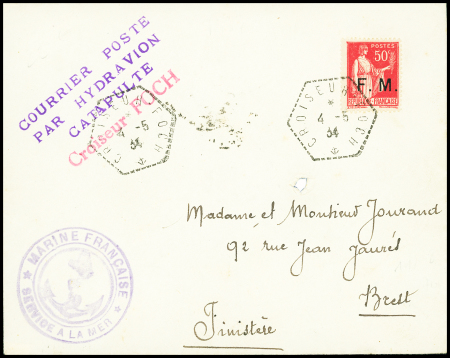 COURRIER POSTE
PAR HYDRAVION
CATAPULTE
Croiseur FOCH
CROISEUR FOCH
4 -5
34
POSTES
50c
F. M.
REPUBLIQUE FRANCAISE
CROISEUR FOCH
4 -5
34
Madame et Monsieur Jourand
92 rue Jean Jaurès
Brest
Finistère
MARINE FRANÇAISE
SERVICE A LA MER